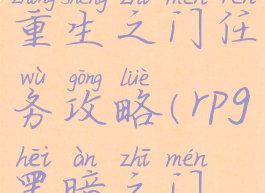 shēng zhī mén rèn
重生之门任
wù gōng lüè
务攻略(rpg
hēi àn zhī mén
黑暗之门